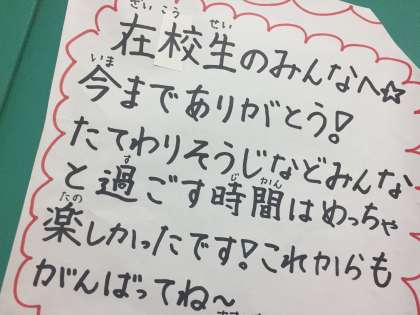 ざいこうせい
在校生のみんなへ☆
いま
今までありがとう!
たてわりそうじなどみんな
すじかん
と過ごす時間はめっちゃ
たの
楽しかったです!これからも
がんばってね～